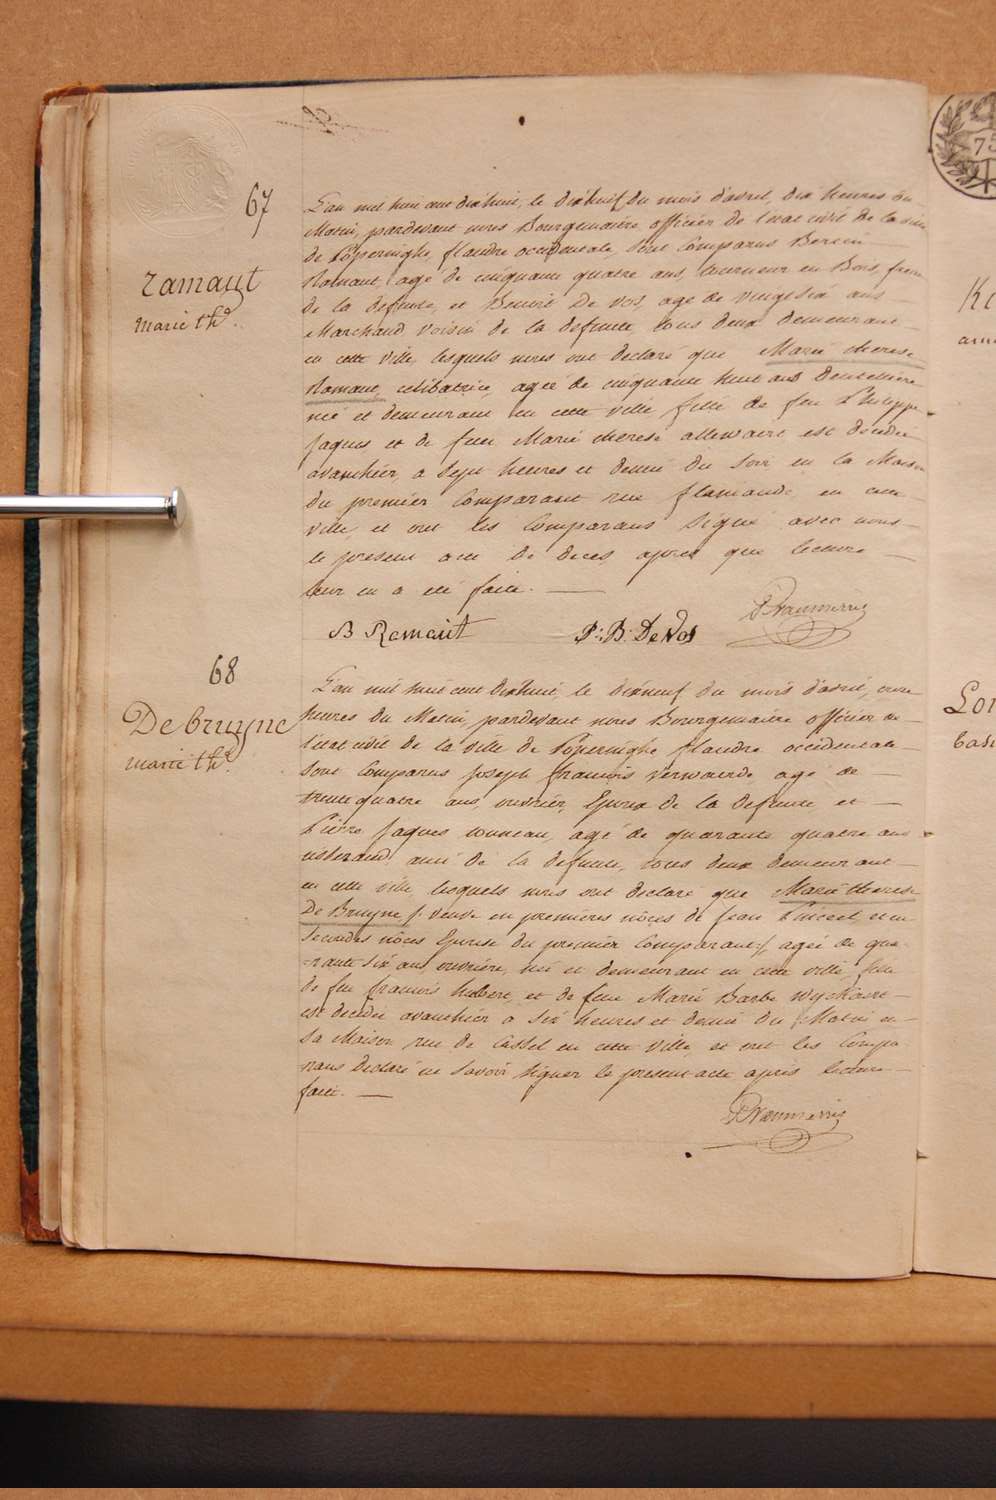 67
Ramaut
marie thˢᵉ.
L'an mil huit cent dixhuit, le dixneuf du mois d'avril, dix heures du
Matin, pardevant nous Bourguemaitre officier de l'etat civil de la ville
de Poperinghe, flandre occidentale, Sont Comparus
Ramaut, agé de cinquante quatre ans, tourneur en Bois, frere
de la defunte, et Benoit De vos, agé de vingt six ans
Marchand voisin de la defunte, tous deux demeurant
en cette ville, lesquels nous ont declaré que Marie therese
Ramaut, celibatrice, agée de cinquante huit ans Dentelliere
née et demeurant en cette ville fille de feu Philippe
Jaques et de feue Marie therese allewaert est decedée
avanthier, a Sept heures et demie du Soir en la Maison
du premier Comparant rue flamande en cette
ville, et ont les Comparans Signé avec nous
le present acte de deces, apres que lecture
leur en a été faite.
B Ramaut P: B: De Vos
68
De bruyne
marie thˢᵉ.
L'an mil huit cent dixhuit, le dixneuf du mois d'avril, onze
heures du Matin, pardevant nous Bourguemaitre officier de
l'etat civil de la ville de Poperinghe flandre occidentale
Sont Comparus Joseph francois Verwaerde, agé de
trente quatre ans, ouvrier, Epoux de la defunte et
Pierre Jaques agé de quarante quatre ans
tisserand ami de la defunte, tous deux demeurant
en cette ville, lesquels nous ont declaré que Marie therese
De Bruyne, veuve en premieres nôces de Jean et en
Secondes nôces Epouse du premier Comparant, agée de qua-
-rante six ans, ouvriere, née et demeurant en cette ville, fille
de feu francois hubert, et de feue Marie Barbe
est decedée avanthier a Six heures et demie du Matin en
Sa Maison rue de Cassel en cette ville et ont les Compa
rans declaré ne Savoir Signer le present acte apres lecture
faite.
75